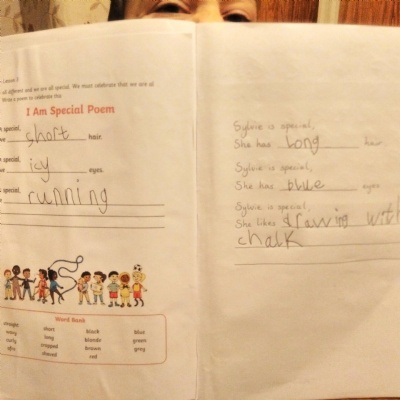 Lesson 2
all different and we are all special. We must celebrate that we are all
Write a poem to celebrate the
I Am Special Poem
special,
short hair.
special,
icy eyes.
special,
running
Word Bank
straight short black blue
wavy long blonde green
curly cropped brown grey
afro shaved red
Sylvie is special,
She has long hair
Sylvie is special,
She has blue eyes
Sylvie is special,
She likes drawing with
chalk